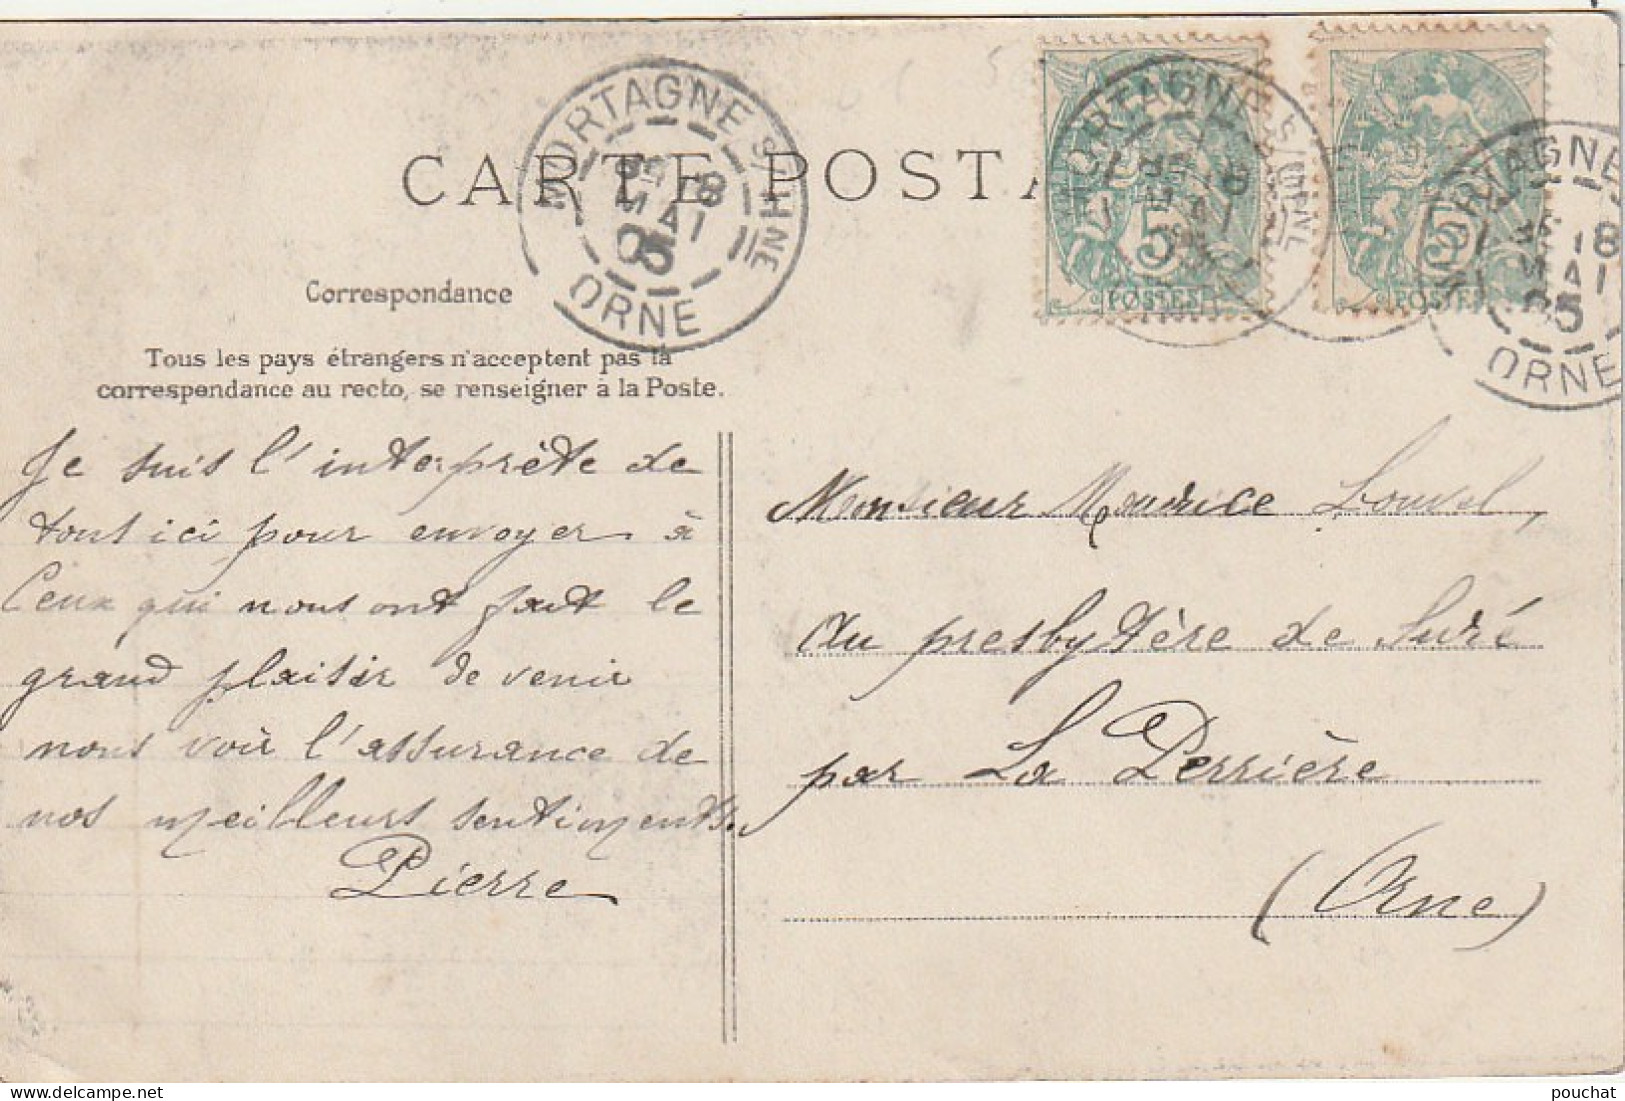 CARTE POSTA
MORTAGNE S/HNE
18
MAI
05
ORNE
MORTAGNE S/HNE
18
MAI
5
POSTES
5
POSTES
MORTAGNE
18
MAI
05
ORNE
Correspondance
Tous les pays étrangers n'acceptent pas la
correspondance au recto, se renseigner à la Poste.
Je suis l'interprète de
tout ici pour envoyer à
Ceux qui nous ont fait le
grand plaisir de venir
nous voir l'assurance de
nos meilleurs sentiments.
Pierre
Monsieur Maurice Louvel,
Au presbytère de Suré
par La Perrière
(Orne)
pouchat